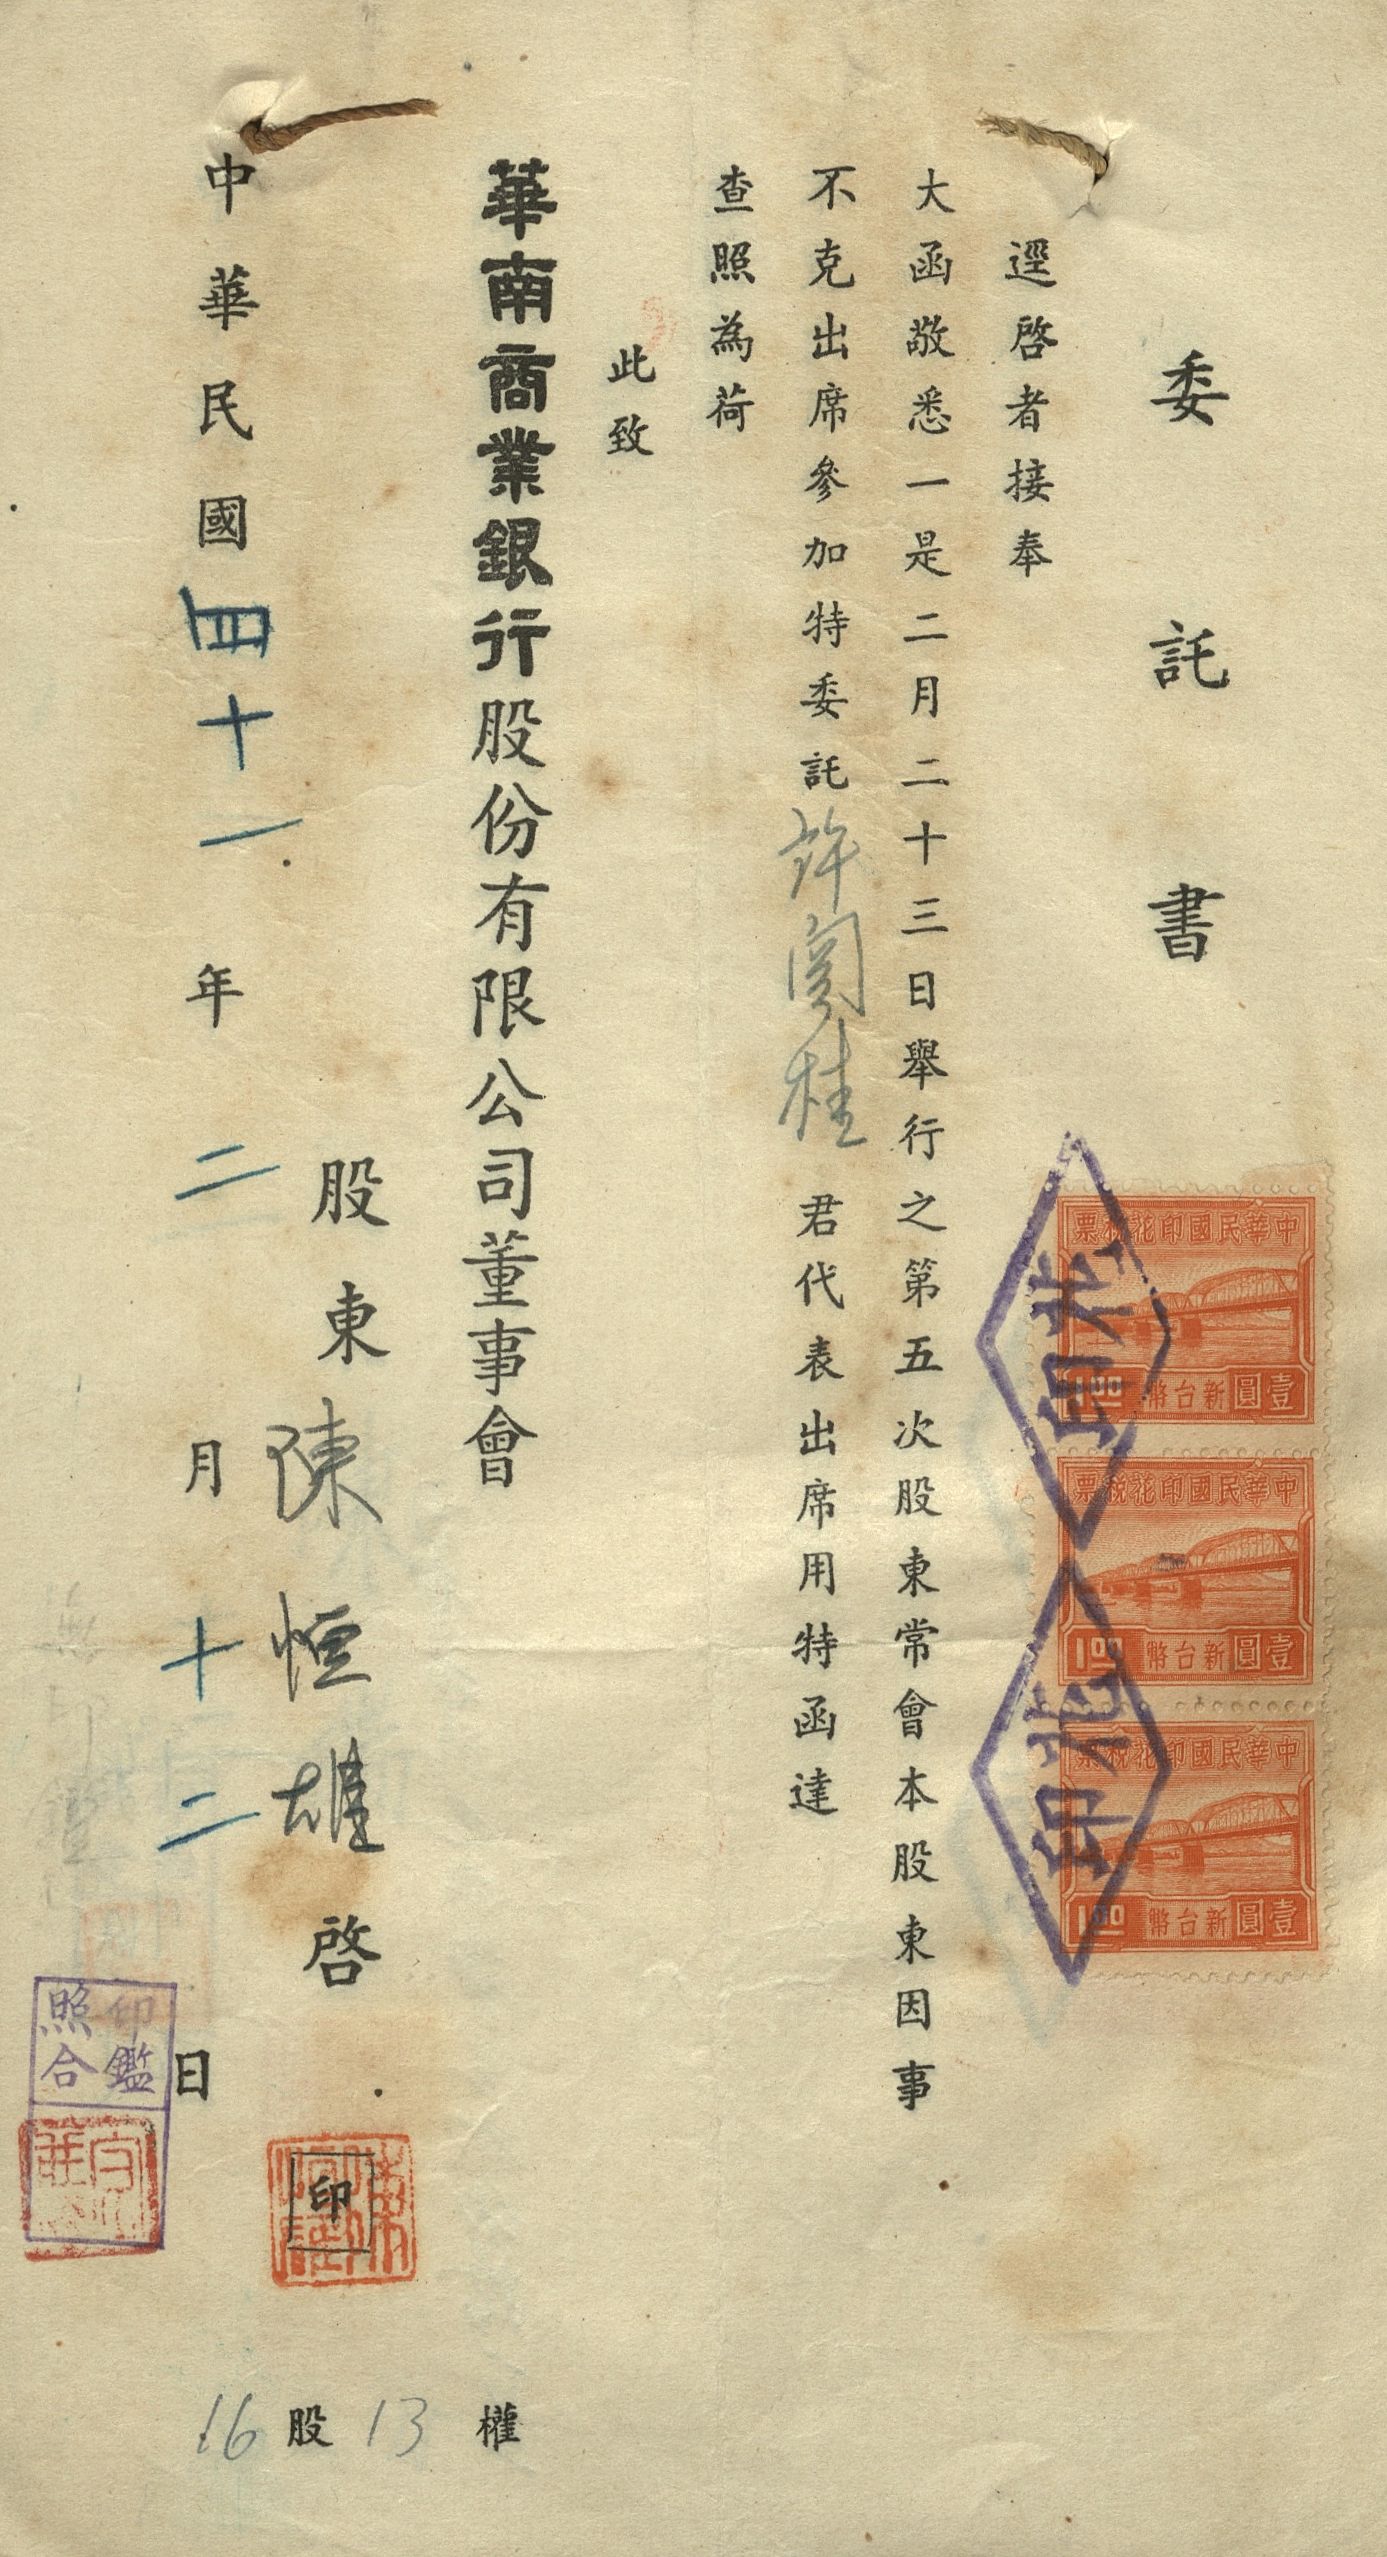 委託書
逕啓者接奉
大函敬悉一是二月二十三日舉行之第五次股東常會本股東因事
不克出席參加特委託許 桂君代表出席用特函達
查照為荷
此致
華南商業銀行股份有限公司董事會
股東陳恒雄啓
印
中華民國四十一年二月十二日
印鑑
照合
16股13權
中華民國印花稅票
1.00
新台幣壹圓
中華民國印花稅票
1.00
新台幣壹圓
中華民國印花稅票
1.00
新台幣壹圓
印花
印花